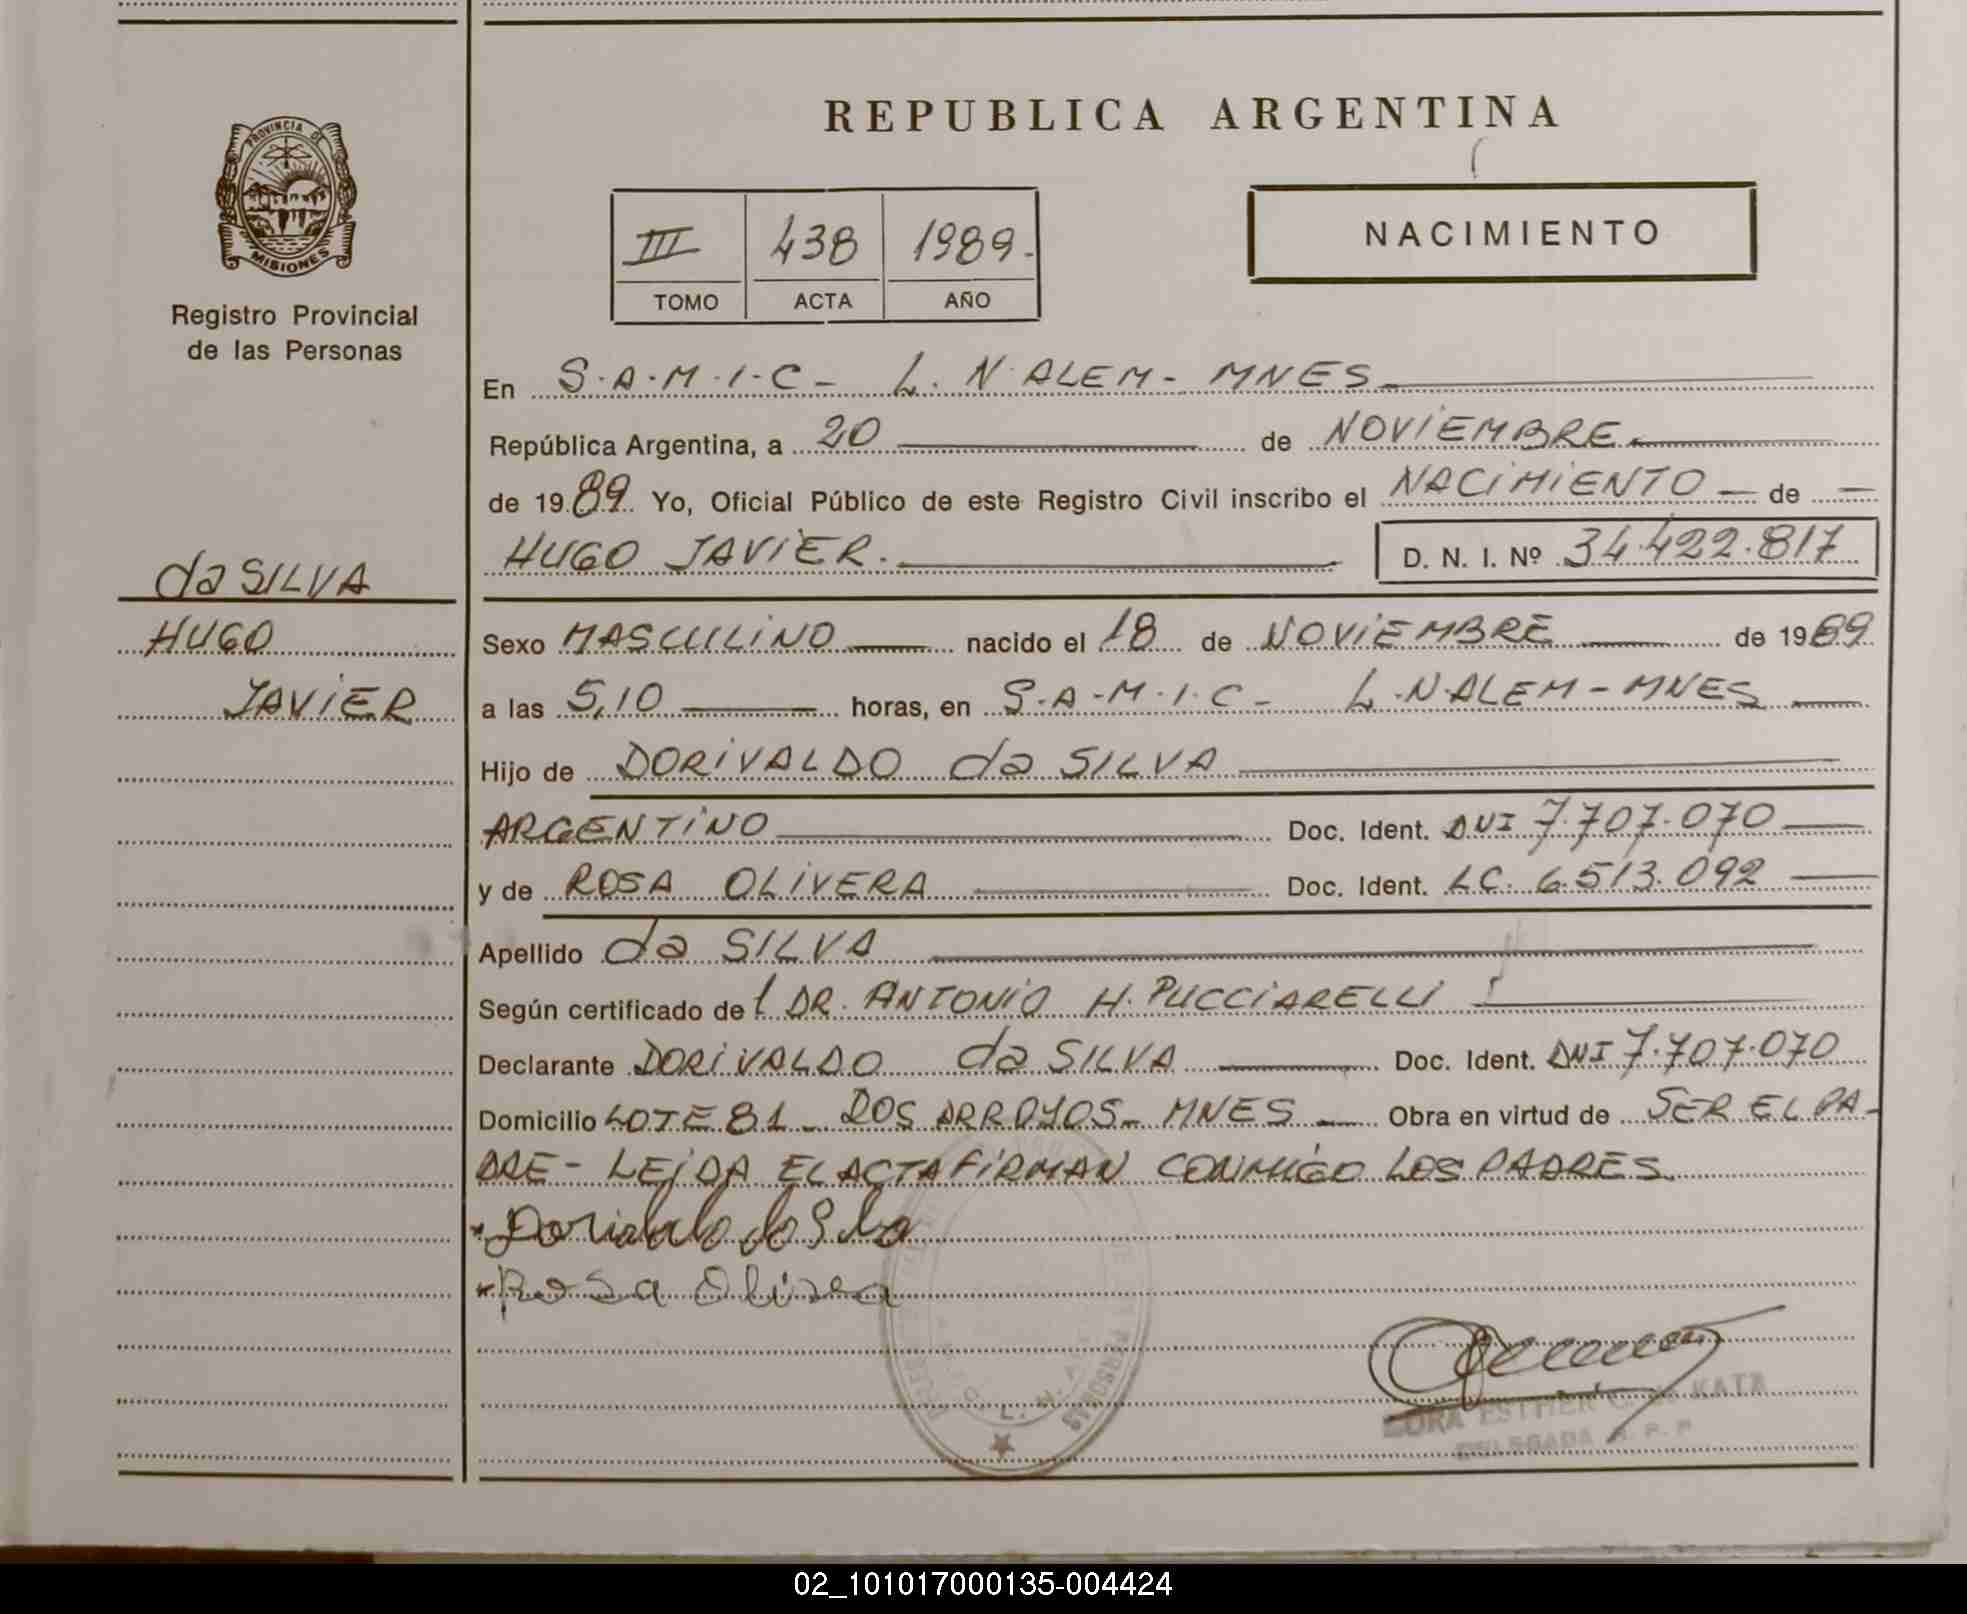 REPUBLICA ARGENTINA
PROVINCIA DE
MISIONES
Registro Provincial
de las Personas
III 438 1989.
TOMO ACTA AÑO
NACIMIENTO
En S.A.M.I.C- L. N. ALEM- MNES
República Argentina, a 20 de NOVIEMBRE
de 1989. Yo, Oficial Público de este Registro Civil inscribo el NACIMIENTO de
HUGO JAVIER. D. N. I. Nº 34.422.817
da SILVA
HUGO
JAVIER
Sexo MASCULINO nacido el 18 de NOVIEMBRE de 1989
a las 5,10 horas, en S.A-M.I.C- L.N.ALEM-MNES
Hijo de DORIVALDO da SILVA
ARGENTINO Doc. Ident. DNI 7.707.070
y de ROSA OLIVERA Doc. Ident. LC. 6.513.092
Apellido da SILVA
Según certificado del DR. ANTONIO H. PUCCIARELLI
Declarante DORIVALDO da SILVA Doc. Ident. DNI 7.707.070
Domicilio LOTE 81- DOS ARROYOS- MNES Obra en virtud de SER EL PA-
DRE- LEIDA EL ACTA FIRMAN CONMIGO LOS PADRES
Rosa
ESTHER C. KATA
DELEGADA R. P. P
L. N.
PERSONAS
02_101017000135-004424